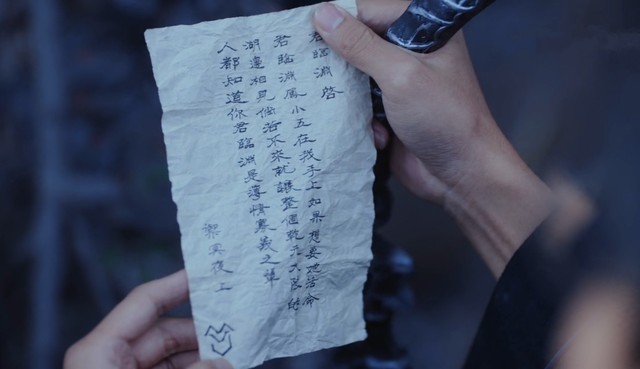 君臨淵啓
君臨淵鳳小五在我手上如果想要她活命
湖邊相見倘若不來就讓整個乾元大陸的
人都知道你君臨淵是薄情寡義之輩
冥夜上